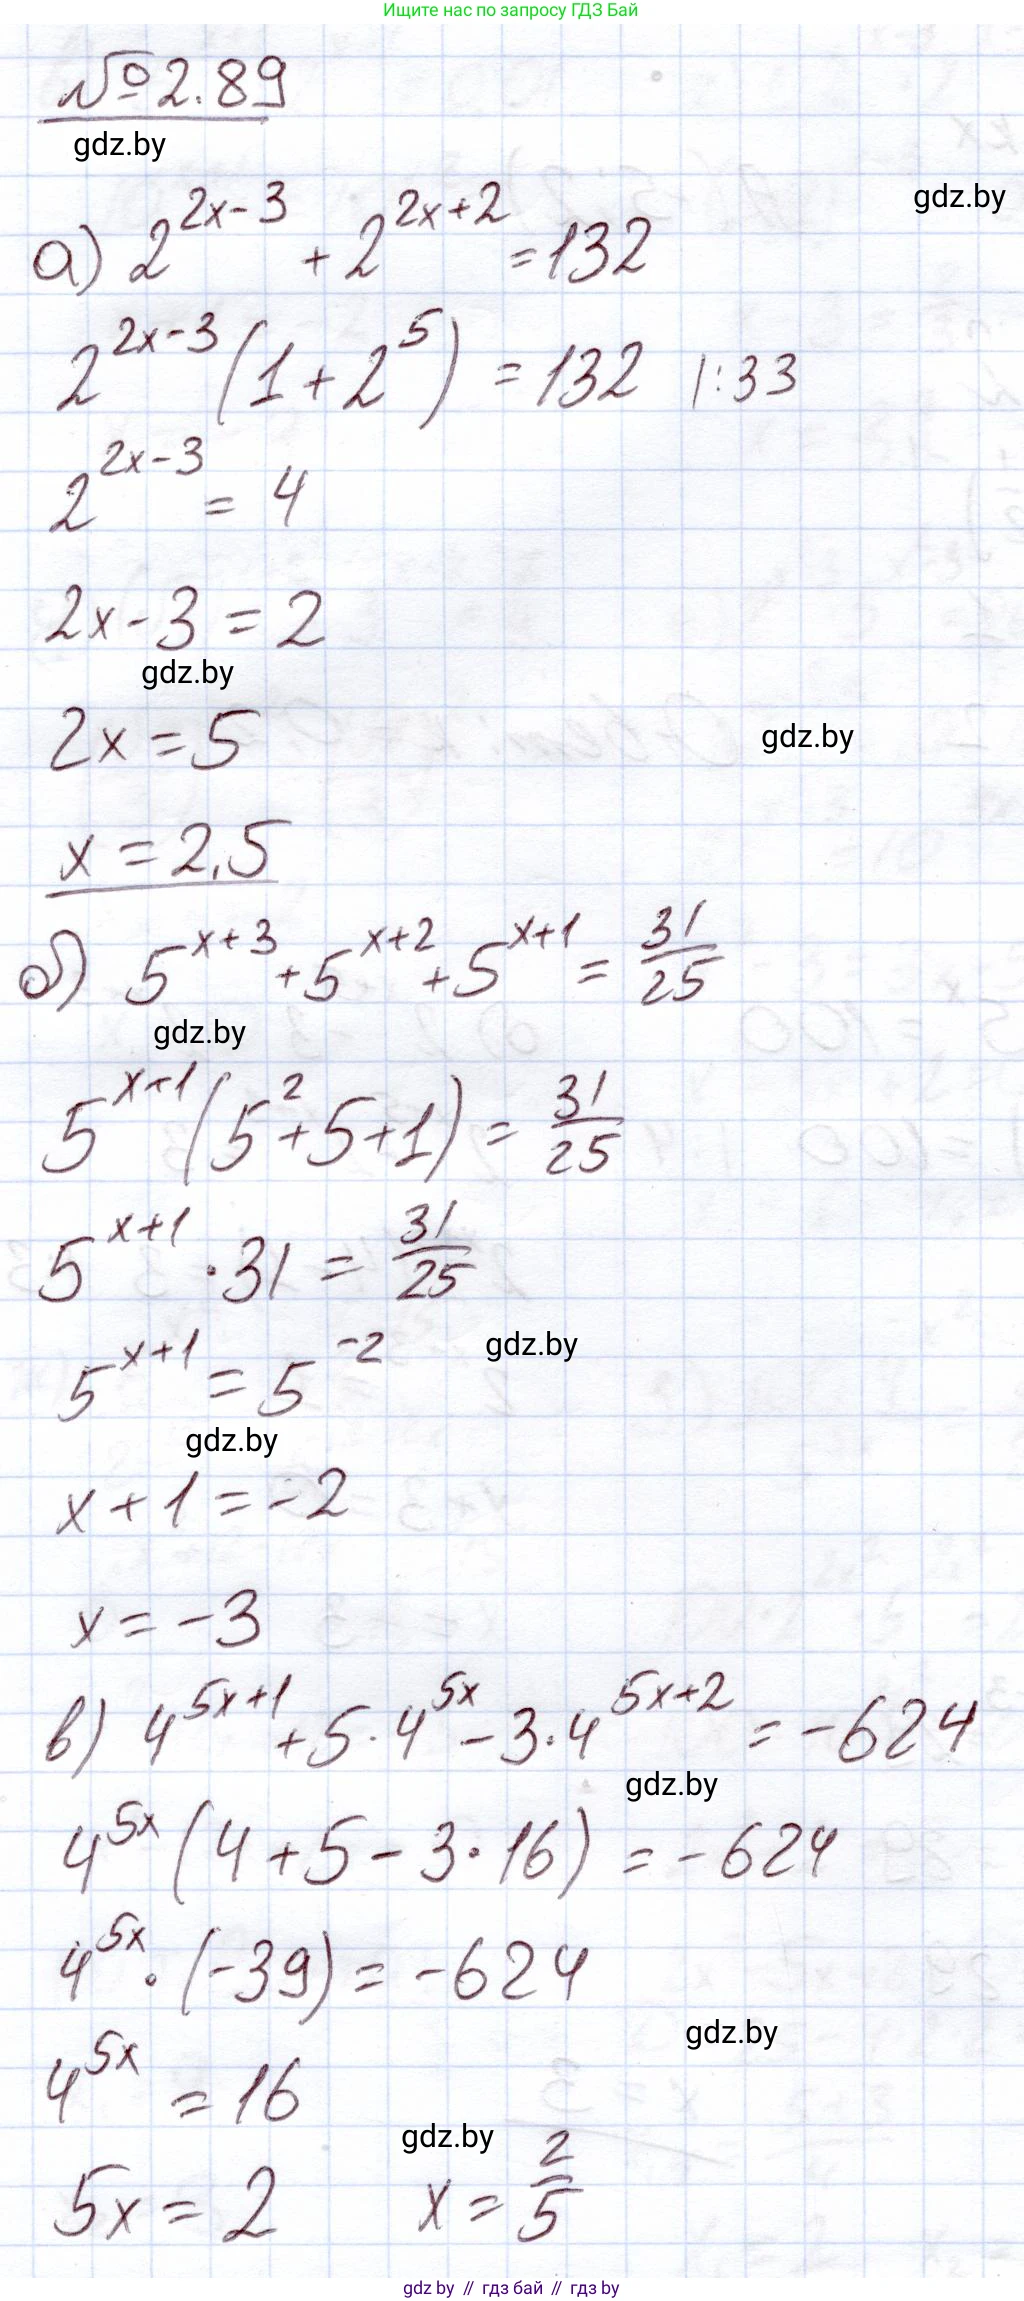 Ищите нас по запросу ГДЗ Бай
№2.89
gdz.by
gdz.by
а) 2^{2x-3} + 2^{2x+2} = 132
2^{2x-3} (1 + 2^5) = 132 |:33
2^{2x-3} = 4
2x - 3 = 2
gdz.by
2x = 5
gdz.by
x = 2,5
б) 5^{x+3} + 5^{x+2} + 5^{x+1} = 31/25
gdz.by
5^{x+1} (5^2 + 5 + 1) = 31/25
5^{x+1} · 31 = 31/25
gdz.by
5^{x+1} = 5^{-2}
gdz.by
x + 1 = -2
x = -3
в) 4^{5x+1} + 5 · 4^{5x} - 3 · 4^{5x+2} = -624
gdz.by
4^{5x} (4 + 5 - 3 · 16) = -624
4^{5x} · (-39) = -624
gdz.by
4^{5x} = 16
gdz.by
5x = 2 x = 2/5
gdz by // гдз бай // gdz by